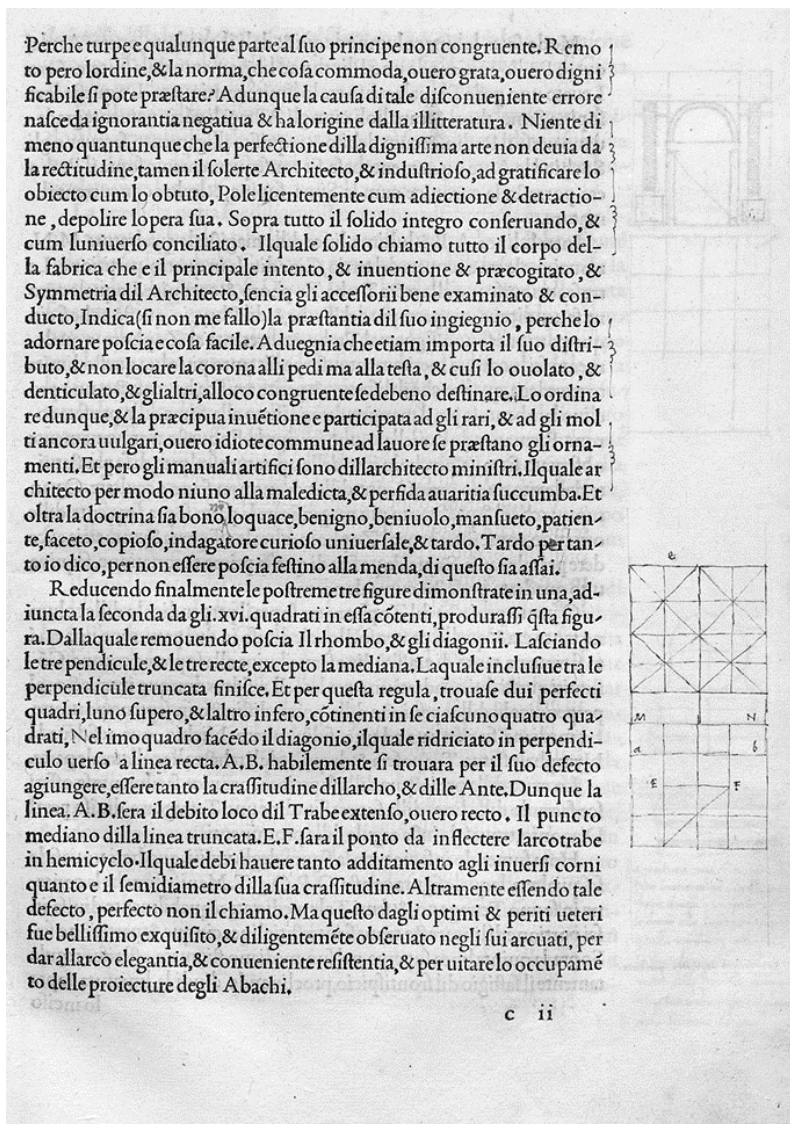 Perche turpe e qualunque parte al ſuo principe non congruente. Remo
to pero lordine,& la norma,che coſa commoda,ouero grata,ouero digni
ficabile ſi pote præſtare? Adunque la cauſa di tale diſconueniente errore
naſce da ignorantia negatiua & ha lorigine dalla illitteratura. Niente di
meno quantunque che la perfectione dilla digniſſima arte non deuia da
la rectitudine,tamen il ſolerte Architecto,& induſtrioſo,ad gratificare lo
obiecto cum lo obtuto, Pole licentemente cum adiectione & detractio-
ne, depolire lopera ſua. Sopra tutto il ſolido integro conſeruando, &
cum luniuerſo conciliato. Ilquale ſolido chiamo tutto il corpo del-
la fabrica che e il principale intento, & inuentione & præcogitato, &
Symmetria dil Architecto,ſencia gli acceſſorii bene examinato & con-
ducto,Indica(ſi non me fallo)la præſtantia dil ſuo ingiegnio, perche lo
adornare poſcia e coſa facile. Aduegnia che etiam importa il ſuo diſtri-
buto,& non locare la corona alli pedi ma alla teſta, & cuſi lo ouolato, &
denticulato,& glialtri,alloco congruente ſe debeno deſtinare. Lo ordina
re dunque,& la præcipua inuẽtione e participata ad gli rari, & ad gli mol
ti ancora uulgari,ouero idiote commune ad lauore ſe præſtano gli orna-
menti. Et pero gli manuali artifici ſono dillarchitecto miniſtri. Ilquale ar
chitecto per modo niuno alla maledicta,& perfida auaritia ſuccumba. Et
oltra la doctrina ſia bono, loquace,benigno,beniuolo,manſueto,patien-
te,faceto,copioſo,indagatore curioſo uniuerſale,& tardo. Tardo per tan-
to io dico,per non eſſere poſcia feſtino alla menda,di queſto ſia aſſai.
Reducendo finalmente le poſtreme tre figure dimonſtrate in una,ad-
iuncta la ſeconda da gli.xvi.quadrati in eſſa cõtenti,produraſſi q̃ſta figu-
ra. Dallaquale remouendo poſcia Il rhombo,& gli diagonii. Laſciando
le tre pendicule,& le tre recte,excepto la mediana. Laquale incluſiue tra le
perpendicule truncata finiſce. Et per queſta regula, trouaſe dui perfecti
quadri,luno ſupero,& laltro infero,cõtinenti in ſe ciaſcuno quatro qua-
drati, Nel imo quadro facẽdo il diagonio,ilquale ridriciato in perpendi-
culo uerſo a linea recta. A.B. habilemente ſi trouara per il ſuo defecto
agiungere,eſſere tanto la craſſitudine dillarcho,& dille Ante. Dunque la
linea. A.B. ſera il debito loco dil Trabe extenſo,ouero recto. Il puncto
mediano dilla linea truncata. E.F. ſara il ponto da inflectere larcotrabe
in hemicyclo. Ilquale debi hauere tanto additamento agli inuerſi corni
quanto e il ſemidiametro dilla ſua craſſitudine. Altramente eſſendo tale
defecto, perfecto non il chiamo. Ma queſto dagli optimi & periti ueteri
fue belliſſimo exquiſito,& diligentemẽte obſeruato negli ſui arcuati, per
dar allarco elegantia,& conueniente reſiſtentia,& per uitare lo occupamẽ
to delle proiecture degli Abachi.
c ii
e
M N
a b
E F